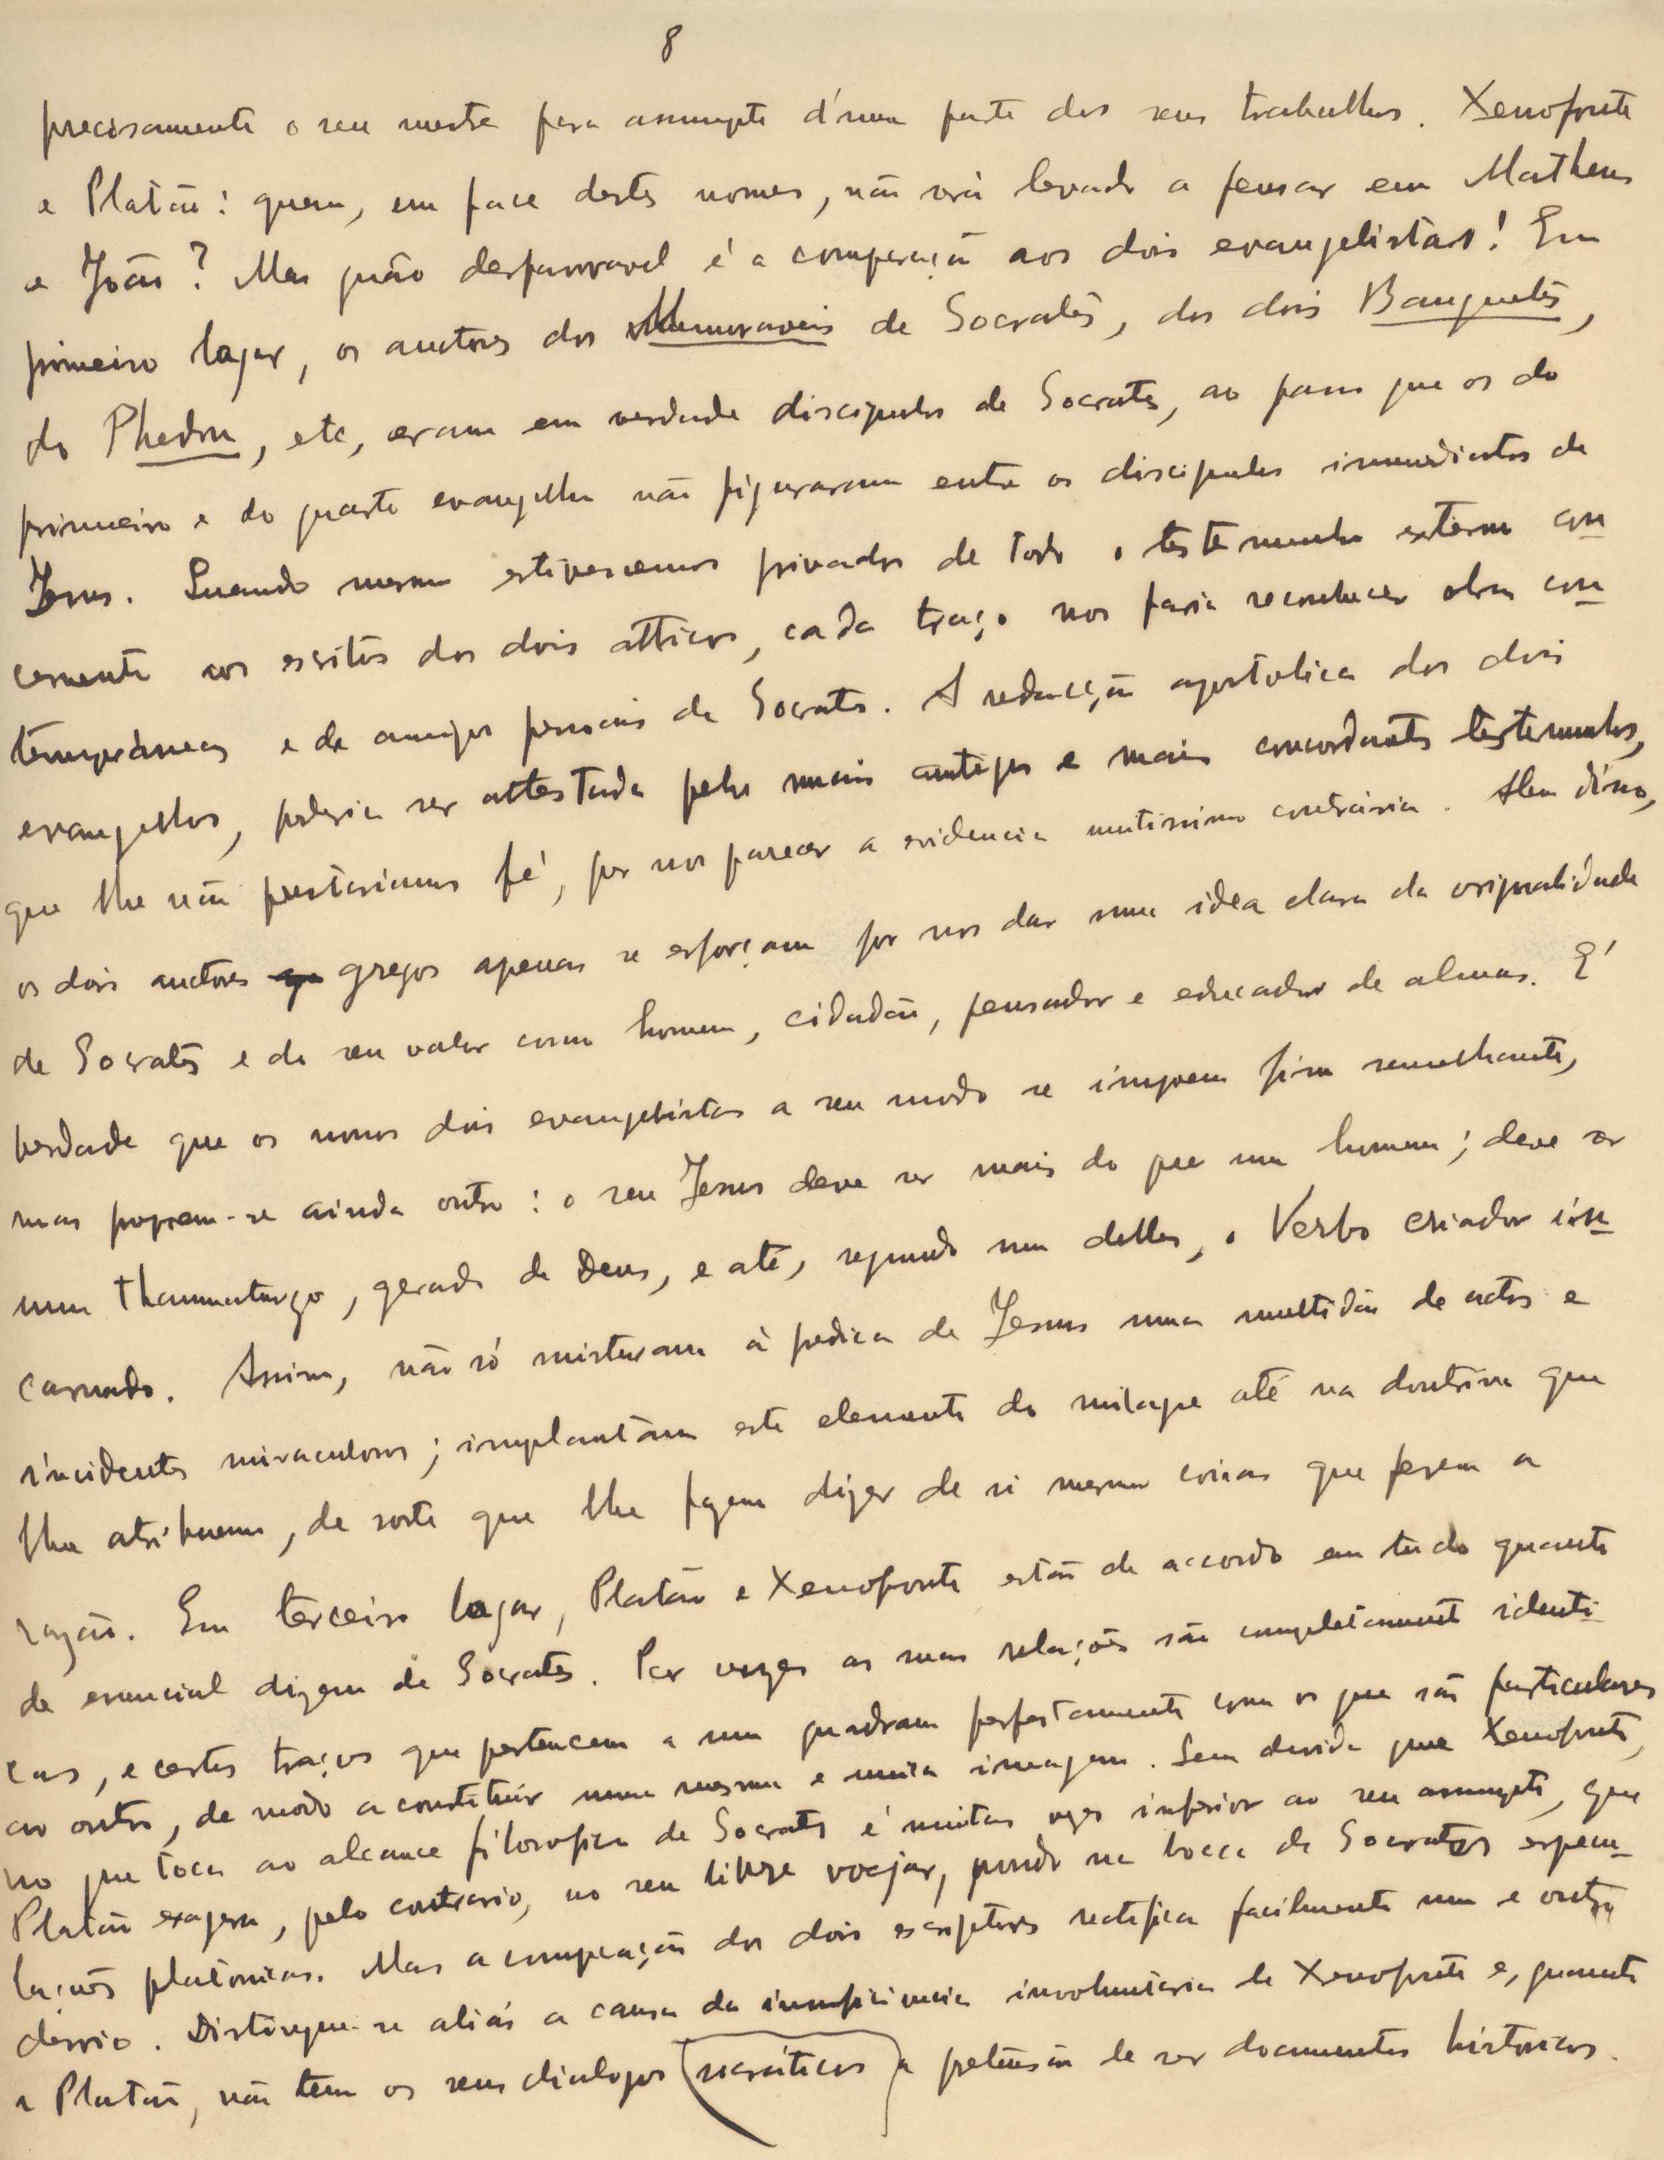 8
precisamente o seu mestre para assumpto d'uma parte dos seus trabalhos. Xenofonte
e Platão: quem, em face destes nomes, não será levado a pensar em Matheus
e João? Mas quão desfavoravel é a comparação aos dois evangelistas! Em
primeiro logar, os auctores dos Memoraveis de Socrates, dos dois Banquetes,
do Phedon, etc, eram em verdade discipulos de Socrates, ao passo que os do
primeiro e do quarto evangelho não figuraram entre os discipulos immediatos de
Jesus. Quando mesmo estivessemos privados de todo o testemunho externo con
cernente aos escritos dos dois atticos, cada traço nos faria reconhecer obra con
temporaneos e de amigos pessoais de Socrates. A redacção apostolica dos dois
evangelhos, poderia ser attestada pelos mais antigos e mais concordantes testemunhos,
que lhe não prestariamos fé, por nos parecer a evidencia muitissimo contrária. Alem d'isso,
os dois auctores gregos apenas se esforçam por nos dar uma idea clara da originalidade
de Socrates e do seu valor como homem, cidadão, pensador e educador de almas. E'
verdade que os nossos dois evangelistas a seu modo se impoem fim semelhante,
mas propoem-se ainda outro: o seu Jesus deve ser mais do que um homem; deve ser
um thaumaturgo, gerado de Deus, e até, segundo um delles, o Verbo criador in
carnado. Assim, não só misturam à prédica de Jesus uma multidão de actos e
incidentes miraculosos; implantam este elemento do milagre até na doutrina que
lhe atribuem, de sorte que lhe fazem dizer de si mesmo coisas que ferem a
razão. Em terceiro logar, Platão e Xenofonte estão de accordo em tudo quanto
de essencial dizem de Socrates. Por vezes as suas relações são completamente identi
cas, e certos traços que pertencem a um quadram perfeitamente com os que são particulares
ao outro, de modo a constituir uma mesma e unica imagem. Sem duvida que Xenofonte,
no que toca ao alcance filosofico de Socrates é muitas vezes inferior ao seu assumpto, que
Platão exagera, pelo contrario, no seu livre voejar, pondo na bocca de Socrates especu
lações platonicas. Mas a comparação dos dois escriptores rectifica facilmente um e outro
desvio. Distingue-se aliás a causa da insuficiencia involuntaria de Xenofonte e, quanto
a Platão, não tem os seus dialogos socráticos a pretensão de ser documentos historicos.